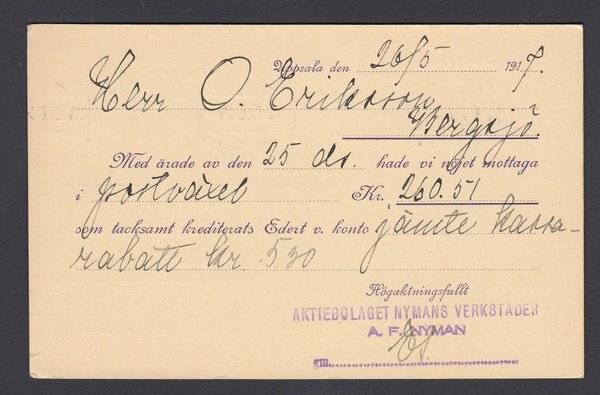 Uppsala den 26/5 1917.
Herr O. Eriksson
Bergsjö.
Med ärade av den 25 ds. hade vi nöjet mottaga
i postväxel Kr. 260.51
som tacksamt krediterats Edert v. konto jämte kassa-
rabatt kr 5.30
Högaktningsfullt
AKTIEBOLAGET NYMANS VERKSTÄDER
A. F. NYMAN
gm.